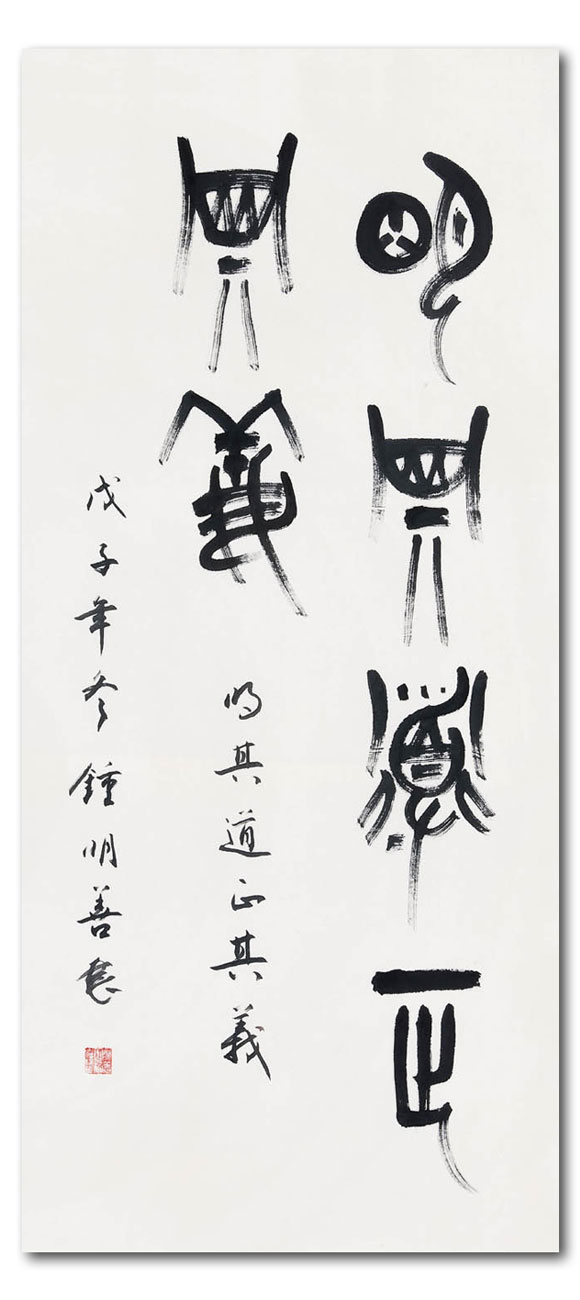 明其道正
其義
明其道正其義
戊子年冬鍾明善